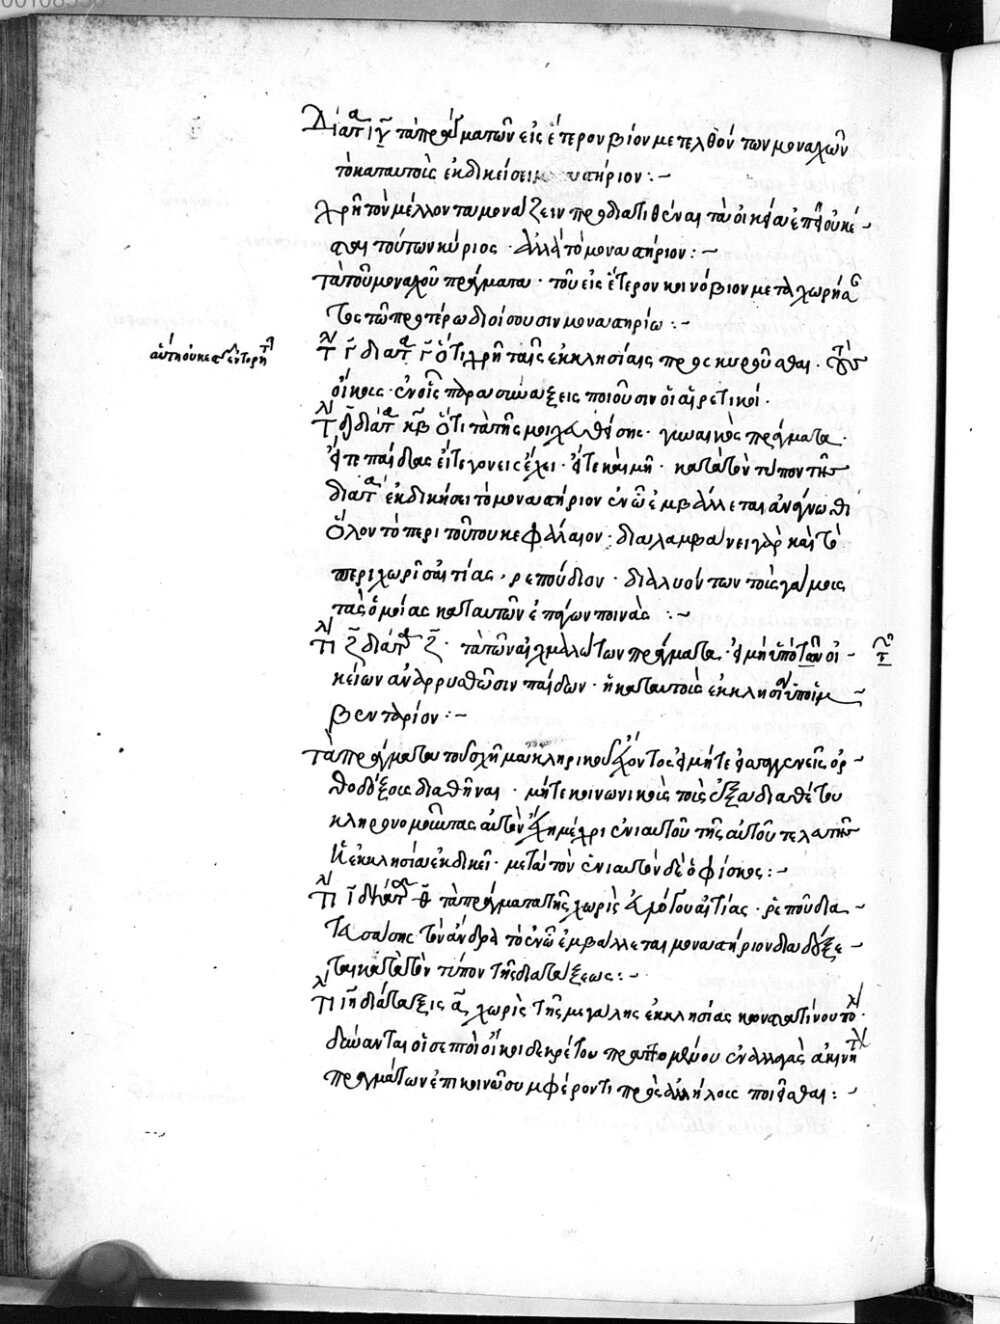 Διάτ ιγ τὰ πράγματα τῶν εἰς ἕτερον βίον μετελθόντων μοναχῶν
τὸ κατ αυτοὺς ἐκδικεῖ μοναστήριον :~
χρὴ τὸν μέλλοντα μονάζειν προδιατιθέναι τὰ οἰκεῖα ἐπεὶ οὐκέ-
ται τούτων κύριος · ἀλλὰ τὸ μοναστήριον :~
τὰ τοῦ μοναχοῦ πράγματα · τοῦ εἰς ἕτερον κοινόβιον μεταχωρήσα
τος τῶ προτέρω διοίσουσιν μοναστηρίω :~
αὕτη οὐ κεῖται
τι γ διατ γ ὅτι χρὴ ταῖς ἐκκλησίαις προσκυροῦσθαι · τοὺς
οἴκους · ἐν οἷς παρασυνάξεις ποιοῦσιν οἱ αἱρετικοί ·
διατ κβ ὅτι τὰ τῆς μοιχαθείσης · γυναικὸς πράγματα ·
εἴτε παῖδας εἴτε γονεῖς ἔχει · εἴτε καὶ μὴ · κατὰ τὸν τύπον τῆς
διατ ἐκδικήσει τὸ μοναστήριον ἐν ὧ ἐμβάλλεται ἀνάγνωθι
ὅλον τὸ περὶ τούτου κεφάλαιον · διαλαμβάνει γὰρ καὶ τὸ
περὶ χωρὶς αἰτίας · ρεπούδιον · διαλυόντων τοὺς γάμους
τὰς ὁμοίας κατ αυτῶν ἐπάγων ποινάς :~
τι ζ διατ ζ · τὰ τῶν αἰχμαλώτων πράγματα · εἰ μὴ ὑπὸ τῶν οἰ-
κείων ἀναρρυσθῶσιν παίδων · ἡ κατ αυτοὺς ἐκκλησία ὑπὸ ἰμ
βεντάριον :~
τὰ πράγματα τοῦ σχῆμα κληρικοῦ ἔχοντος εἰ μήτε συγγενεῖς ὀρ-
θοδόξοις διαθῆναι · μήτε κοινωνικοὺς τοὺς ἐξ αδιαθέτου
κληρονομοῦντας αὐτὸν ἔχη μέχρι ἐνιαυτοῦ τῆς αὐτοῦ τελευτῆς
ἡ ἐκκλησία ἐκδικεῖ · μετὰ τὸν ἐνιαυτὸν δὲ ὁ φίσκος :~
τι διατ θ τὰ πράγματα τῆς χωρὶς εὐλόγου αἰτίας · ῥεπούδια
σάσης τὸν ἄνδρα τὸ ἐν ὧ ἐμβάλλεται μοναστήριον διαδέξε-
ται κατὰ τὸν τύπον τῆς διατάξεως :~
τι ιη διάταξις α χωρὶς τῆς μεγάλης ἐκκλησίας κωνσταντίνου πο
δύνανται οἱ σεπτοὶ οἶκοι δεκρέτου πραττομένου ἐναλλαγὰς ἀκινή
πραγμάτων ἐπὶ κοινῶ συμφέροντι πρὸς ἀλλήλους ποιεῖσθαι :~